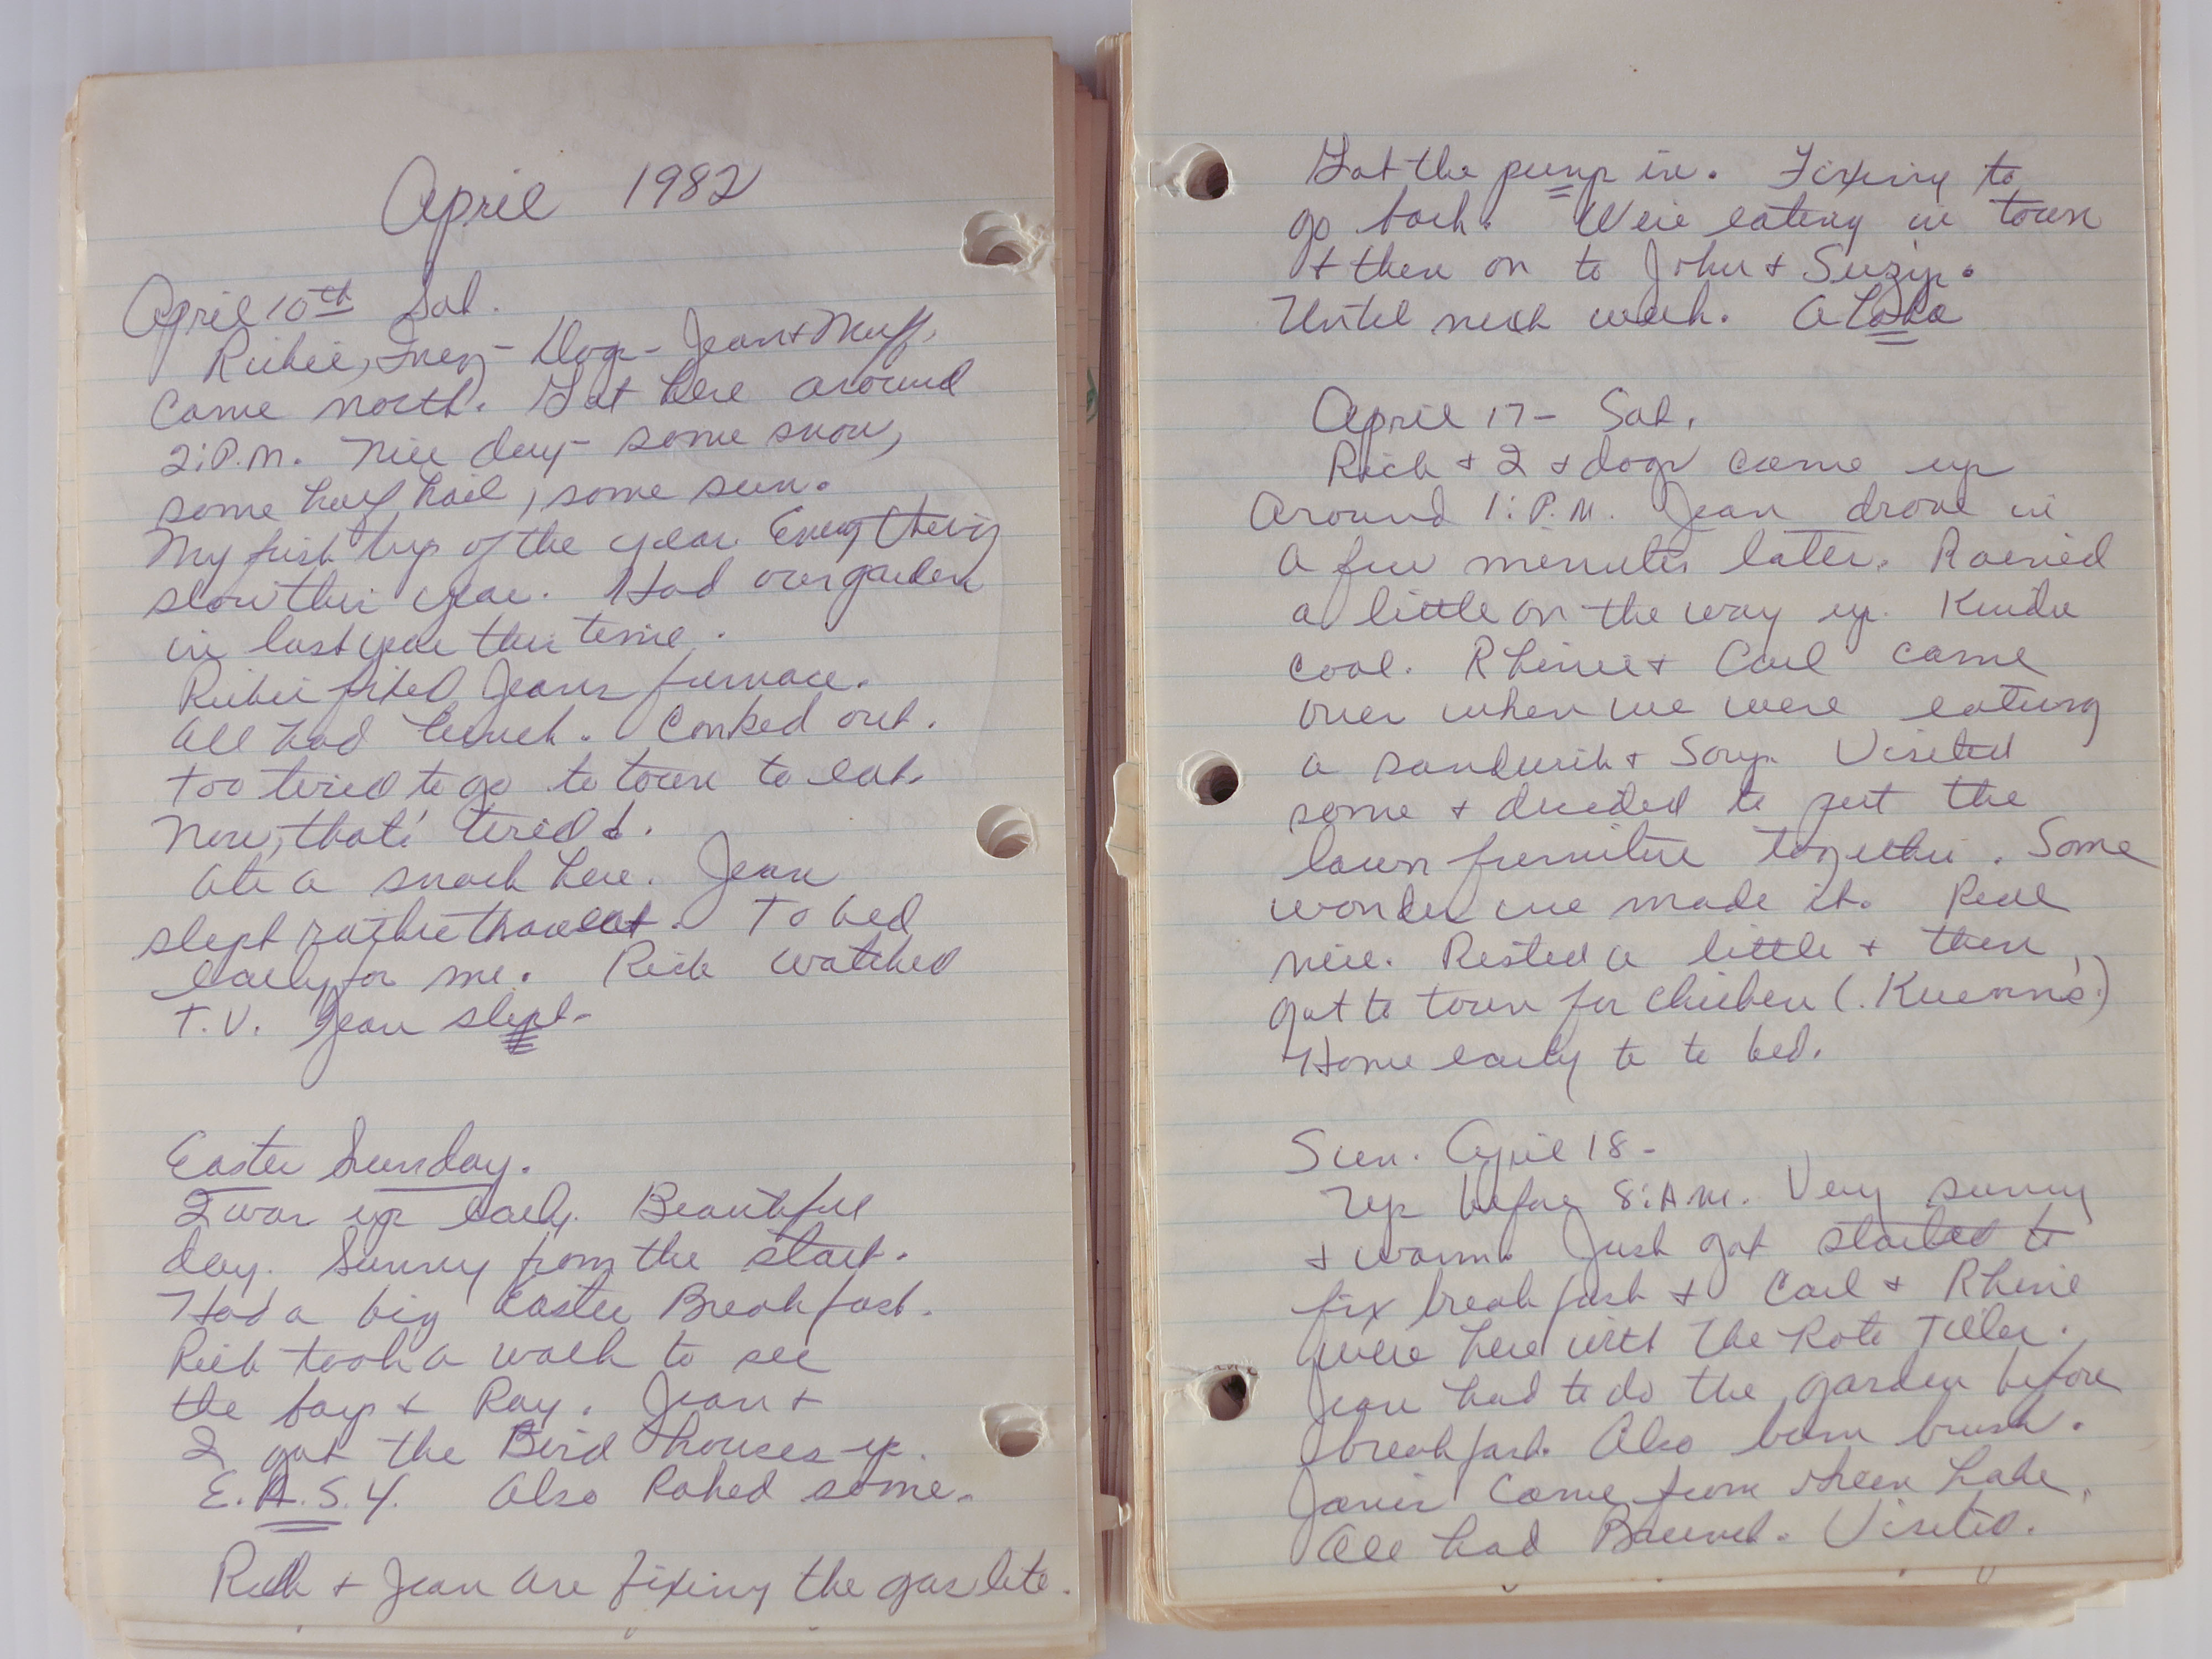 April 1982
April 10th Sat.
Richie, Inez - Dogs - Jean + Muff,
Came north. Got here around
2:P.M. Nice day - some snow,
some hail, some sun.
My first trip of the year. Everything
slow this year. Had our garden
in last year this time.
Richie fixed Jeans furnace.
All had lunch. Conked out.
Too tired to go to town to eat.
Now, that's tired!.
Ate a snack here. Jean
slept rather than eat. To bed
early for me. Rich watched
T.V. Jean slept-
Easter Sunday.
I was up early. Beautiful
day. Sunny from the start.
Had a big Easter Breakfast.
Rich took a walk to see
the boys + Ray. Jean +
I got the Bird houses up.
E.A.S.Y. Also Raked some.
Rich + Jean are fixing the gas lite.
Got the pump in. Fixing to
go back. We're eating in town
+ then on to John + Suzy's.
Until next week. Aloha
April 17 - Sat.
Rich + I + dogs came up
Around 1:P.M. Jean drove in
a few minutes later. Rained
a little on the way up. Kinda
cool. Rhinie + Carl came
over when we were eating
a sandwich + Soup. Visited
some + decided to put the
lawn furniture together. Some
wonder we made it. Real
nice. Rested a little + then
got to town for chicken (.)
Home early to to bed.
Sun. April 18-
Up before 8:A.M. Very sunny
+ warm. Just got started to
fix breakfast + Carl + Rhinie
were here with The Roto Tiller.
Jean had to do the garden before
breakfast. Also burn brush.
Janis Came from Lake.
All had Brunch. Visited.